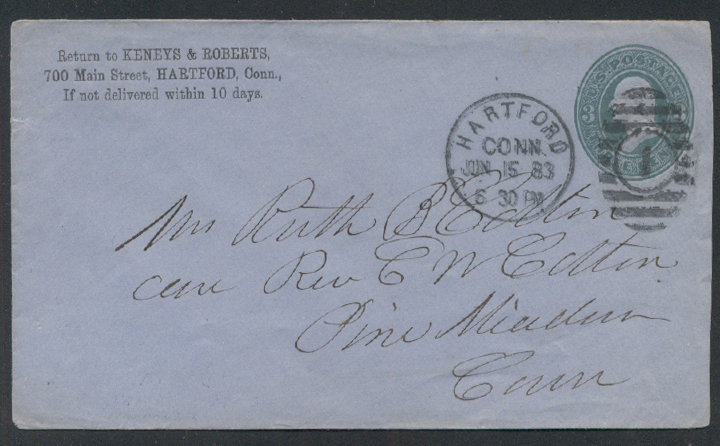 Return to KENEYS & ROBERTS,
700 Main Street, HARTFORD, Conn.,
If not delivered within 10 days.
U.S. POSTAGE
HARTFORD
CONN.
JUN 15 83
6 30 PM
1
Mrs Ruth B Cotton
care Rev E W Cotton
Pine Meadow
Conn